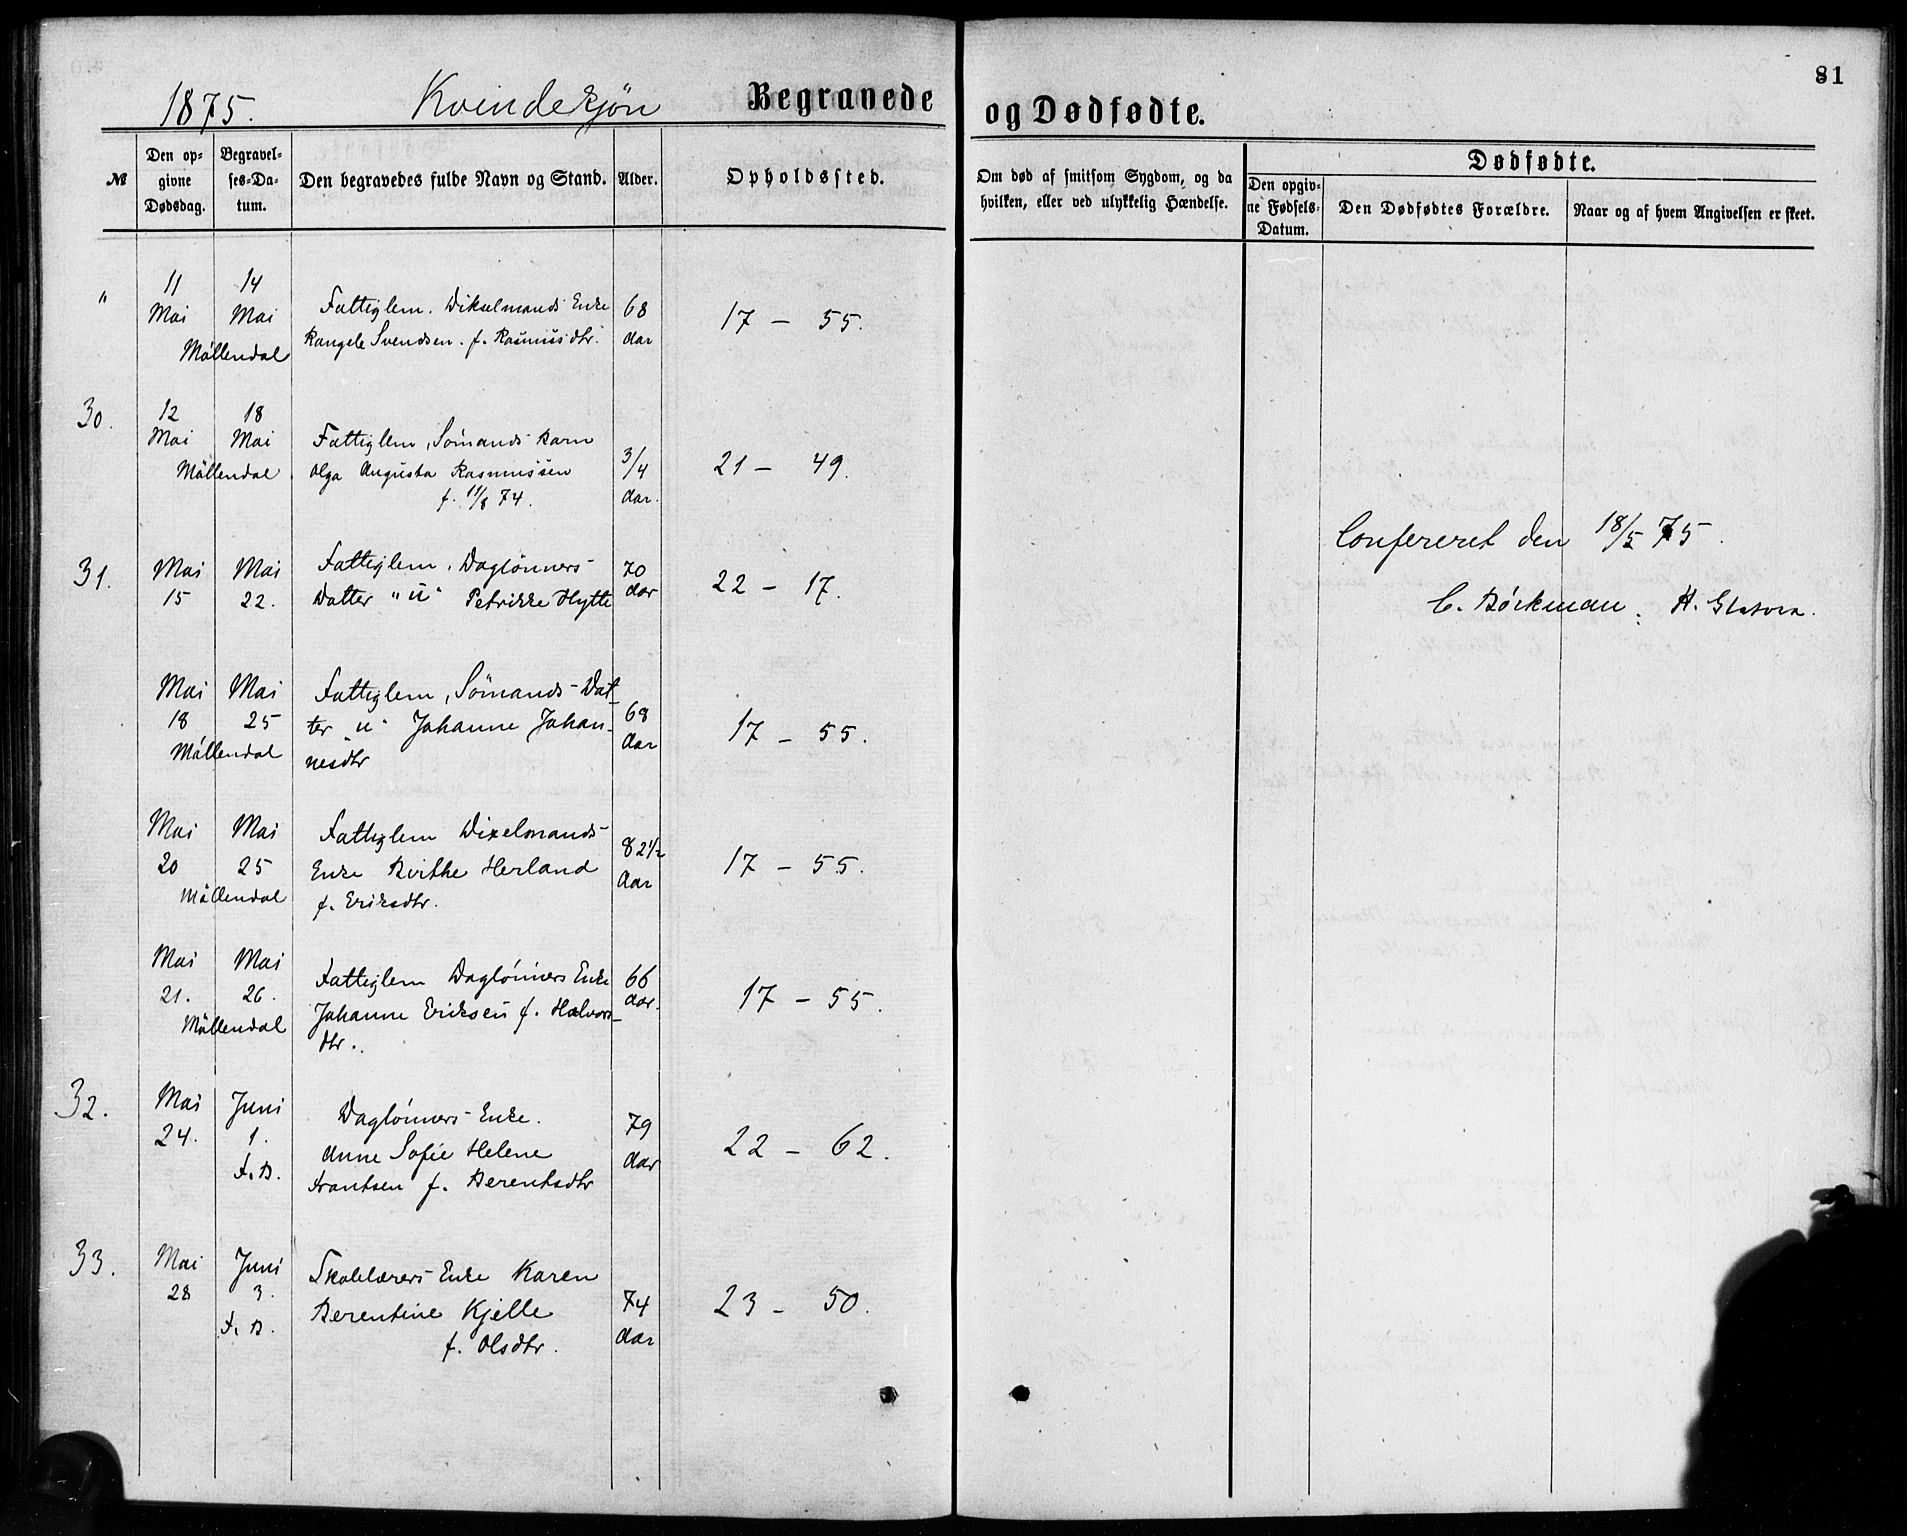 81
1875. Kvindekjøn Begravede og Dødfødte.
№
Den opgivne Dødsdag.
Begravelses-Datum.
Den begravedes fulde Navn og Stand.
Alder.
Opholdssted.
Om død af smitsom Sygdom, og da hvilken, eller ved ulykkelig Hændelse.
Dødfødte.
Den opgivne Fødsels-Datum.
Den Dødfødtes Forældre.
Naar og af hvem Angivelsen er skeet.
" 11 14
Mai Mai Fattiglem. Dikselmands Enke 68 17 - 55.
Svendsen. f. Rasmusdtr. Aar
Möllendal
30. 12 18
Mai Mai Fattiglem, Sömands Barn
Möllendal Olga Augusta Rasmussen 3/4 21 - 49.
f. 11/8 74. Aar.
Confereret den 18/5 75.
31. Mai Mai Fattiglem. Daglönners- 70 22 - 17.
15 22. Datter "u" Petrikke Hytte Aar
C. Böckman. H.
Mai Mai Fattiglem, Sömands-Dat-
18 25 ter "u" Johanne Johan- 68 17 - 55.
Möllendal nesdtr Aar
Mai Mai Fattiglem Dixelmands-
20 25 Enke Birthe Herland 82 1/2 17 - 55.
Möllendal f. Eriksdtr. Aar
Mai Mai Fattiglem Daglönners Enke 66 17 - 55.
21. 26. Johanne Eriksen f. Halvors- Aar.
Möllendal dtr.
32. Mai Juni Daglönners-Enke. 79
24. 1. Anne Sofie Helene Aar 22 - 62.
F. B. Frantsen f. Berentsdtr
33. Mai Juni Skolelærers-Enke Karen
28 3. Berentine Kjelle 74 23 - 50.
F. B. f. Olsdtr. Aar